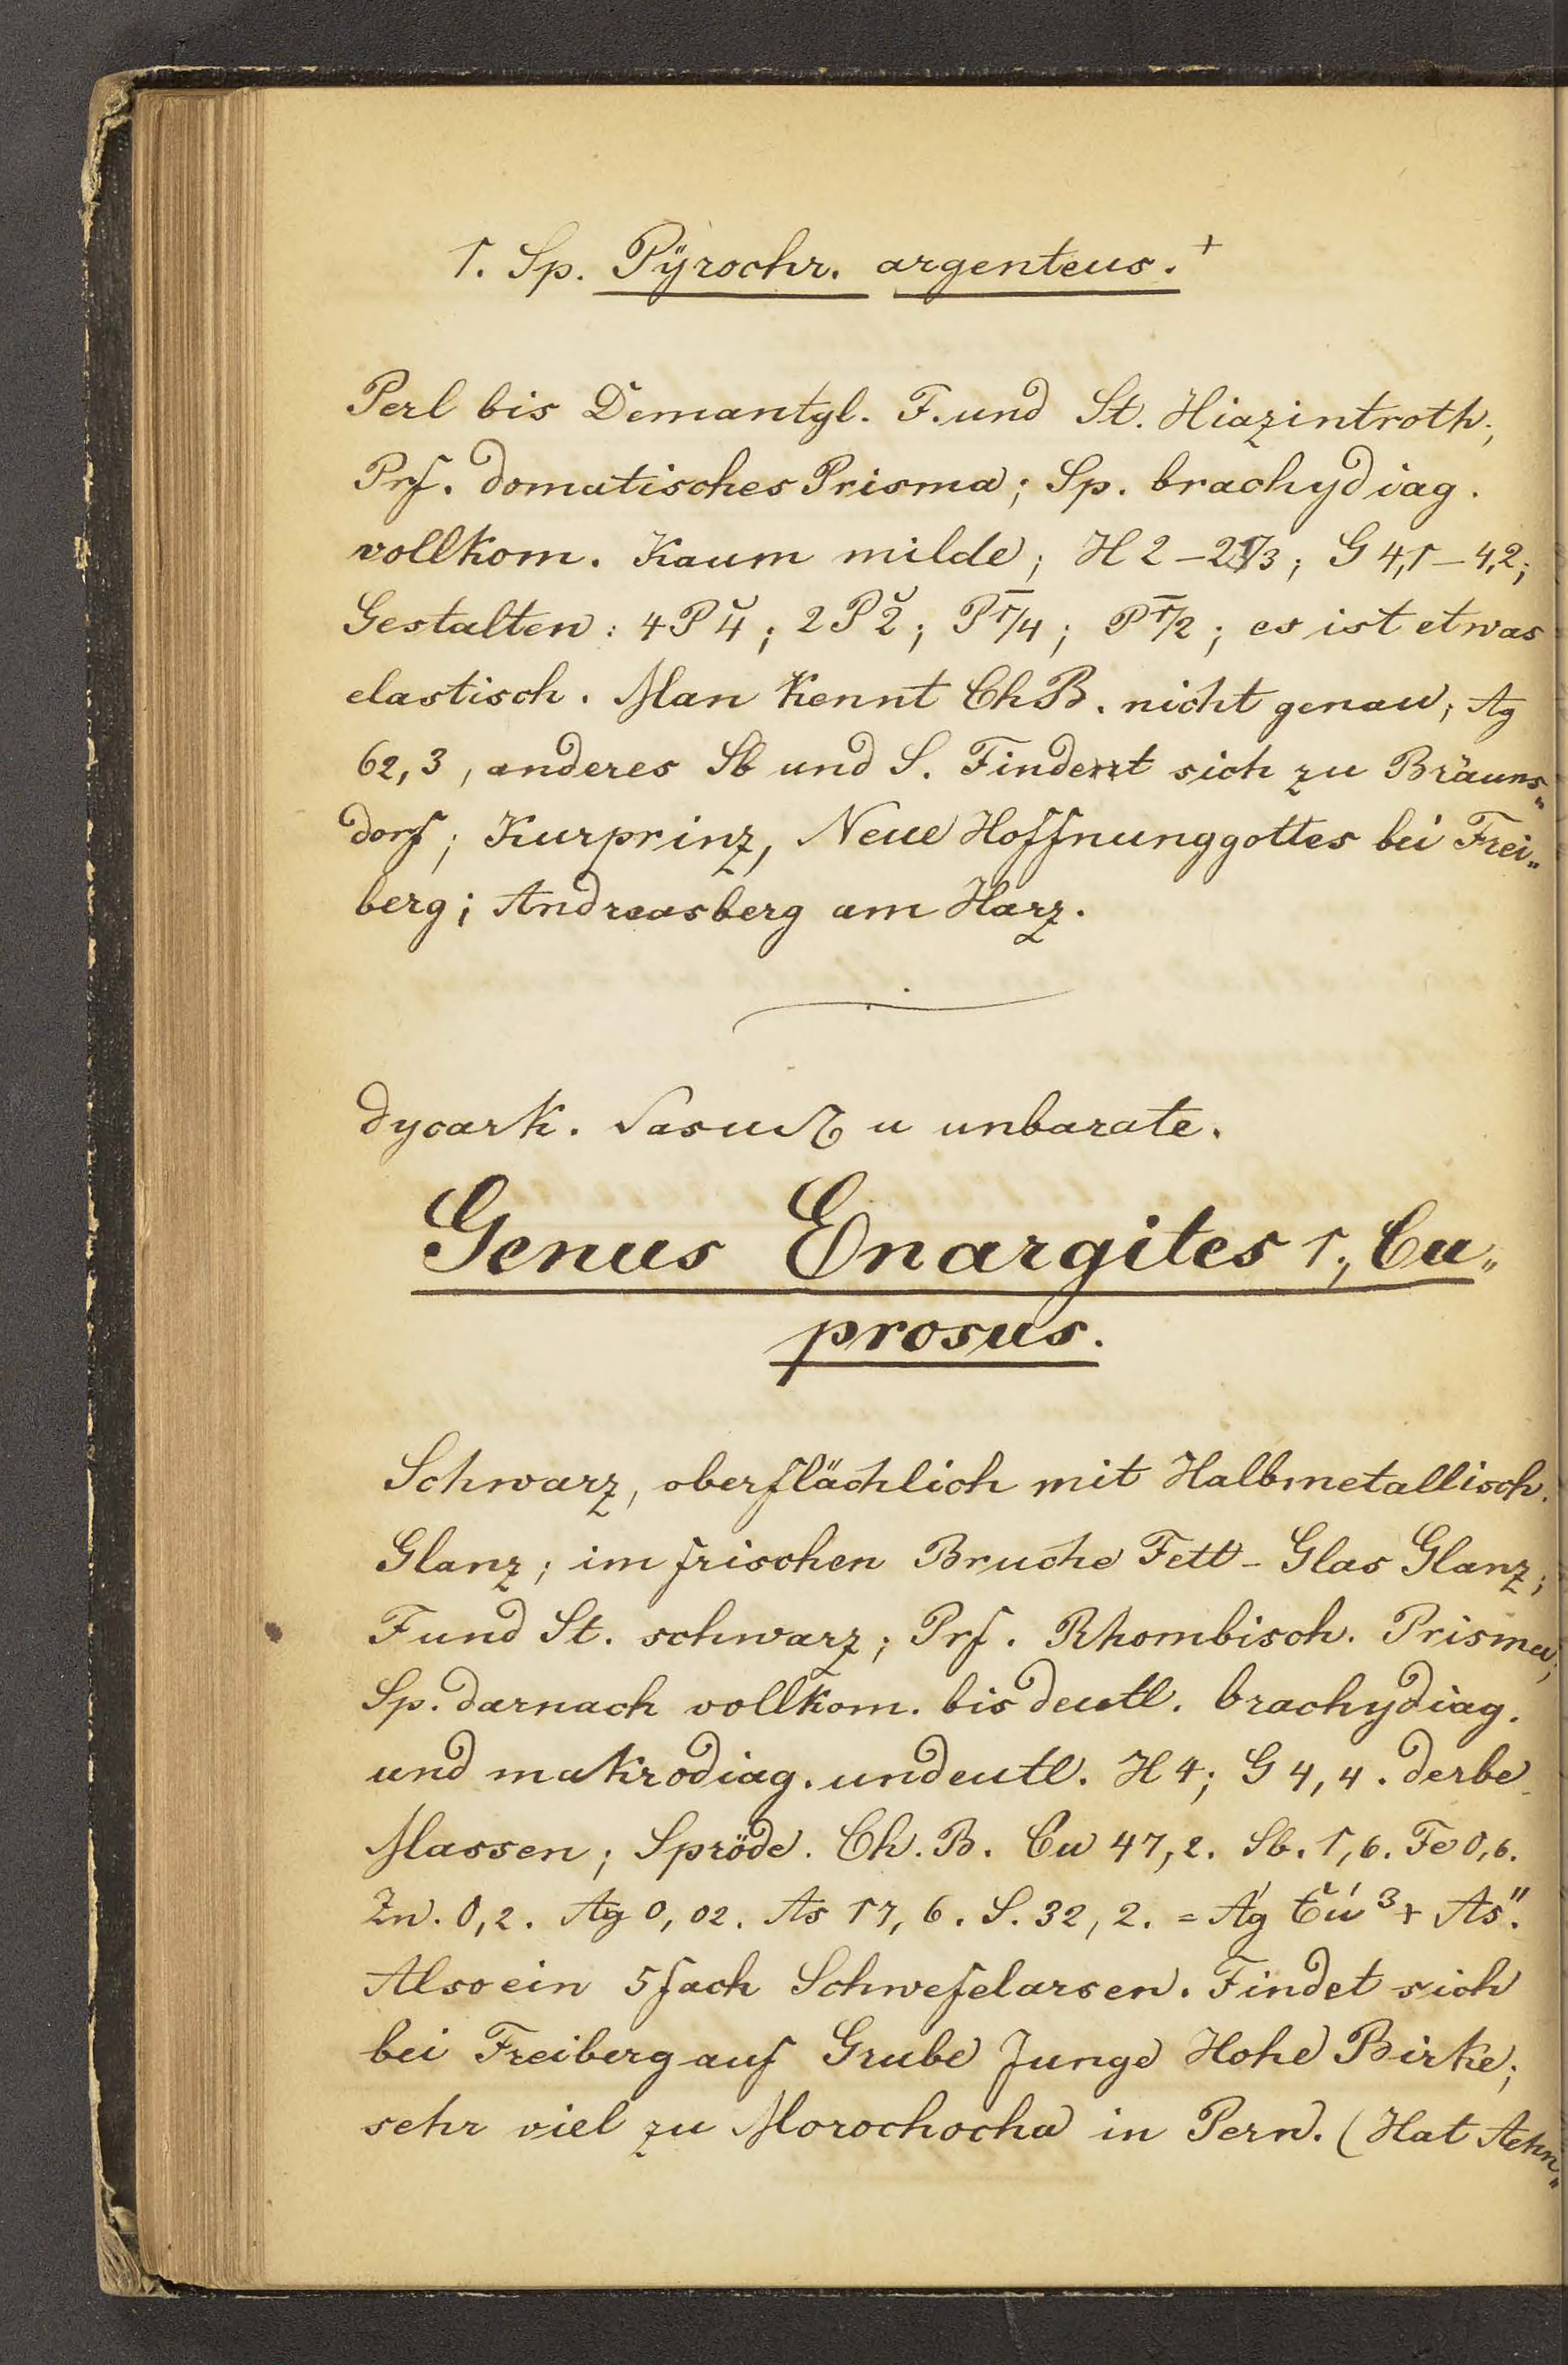 1. Sp. Pÿrochr. argenteus.+
Perl bis Demantgl. F. und St. Hiazintroth;
Prf. domatisches Prisma; Sp. brachydiag.
vollkom. Kaum milde; H 2–2 1/3; G 4,1–4,2;
Gestalten: 4P̆4; 2P̆2; P̄1/4; P̄1/2; es ist etwas
elastisch. Man kennt ChB. nicht genau; Ag
62,3, anderes Sb und S. Findent sich zu Bräuns„
dorf; Kurprinz, Neue Hoffnunggottes bei Frei„
berg; Andreasberg am Harz.
dycark. u unbarate.
Genus Enargites 1., Cu„
prosus.
Schwarz, oberflächlich mit Halbmetallisch.
Glanz; im frischen Bruche Fett-Glas Glanz;
F und St. schwarz; Prf. Rhombisch. Prisma;
Sp. darnach vollkom. bis deutl. brachydiag.
und makrodiag. undeutl. H 4; G 4,4. derbe
Massen; Spröde. Ch. B. Cu 47,2. Sb. 1,6. Fe 0,6.
Zn. 0,2. Ag 0,02. As 17,6. S. 32,2. = A'g Cu'³ + As".
Also ein 5fach Schwefelarsen. Findet sich
bei Freiberg auf Grube Junge Hohe Birke;
sehr viel zu Morochocha in Peru. (Hat Aehn„